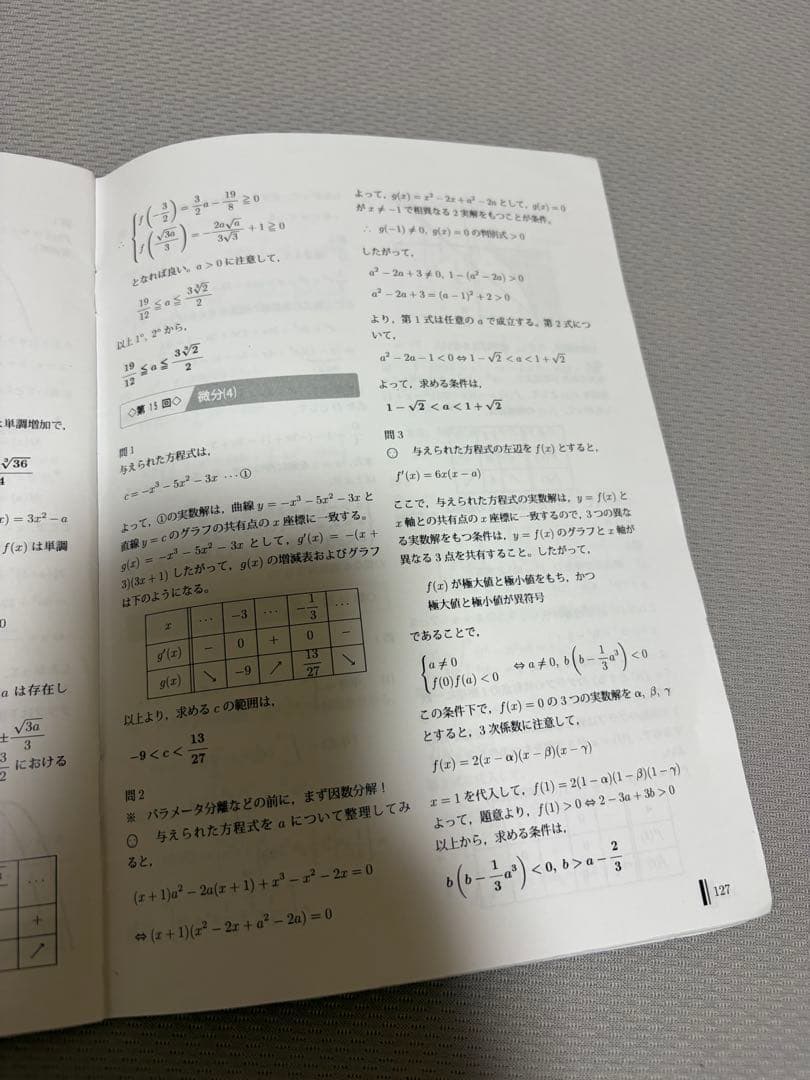 は単調増加で,
∛36
4
x) = 3x² − a
f(x) は単調
0
a は存在し
± √3a/3
3/2 における
…
+
↗
∴ { f(3/2) = 3/2 a − 19/8 ≧ 0
f(√3a/3) = − 2a√a/3√3 + 1 ≧ 0
となれば良い。a > 0 に注意して,
19/12 ≦ a ≦ 3∛2/2
以上 1°, 2° から,
19/12 ≦ a ≦ 3∛2/2
◇第 15 回◇ 微分(4)
問 1
与えられた方程式は,
c = −x³ − 5x² − 3x … ①
よって, ①の実数解は, 曲線 y = −x³ − 5x² − 3x と
直線 y = c のグラフの共有点の x 座標に一致する。
g(x) = −x³ − 5x² − 3x として, g′(x) = −(x +
3)(3x + 1) したがって, g(x) の増減表およびグラフ
は下のようになる。
x … −3 … −1/3 …
g′(x) − 0 + 0 −
g(x) ↘ −9 ↗ 13/27 ↘
以上より, 求める c の範囲は,
−9 < c < 13/27
問 2
※ パラメータ分離などの前に, まず因数分解！
与えられた方程式を a について整理してみ
ると,
(x + 1)a² − 2a(x + 1) + x³ − x² − 2x = 0
⇔ (x + 1)(x² − 2x + a² − 2a) = 0
よって, g(x) = x² − 2x + a² − 2a として, g(x) = 0
が x ≠ −1 で相異なる 2 実解をもつことが条件。
∴ g(−1) ≠ 0, g(x) = 0 の判別式 > 0
したがって,
a² − 2a + 3 ≠ 0, 1 − (a² − 2a) > 0
a² − 2a + 3 = (a − 1)² + 2 > 0
より, 第 1 式は任意の a で成立する。第 2 式につ
いて,
a² − 2a − 1 < 0 ⇔ 1 − √2 < a < 1 + √2
よって, 求める条件は,
1 − √2 < a < 1 + √2
問 3
与えられた方程式の左辺を f(x) とすると,
f′(x) = 6x(x − a)
ここで, 与えられた方程式の実数解は, y = f(x) と
x 軸との共有点の x 座標に一致するので, 3 つの異な
る実数解をもつ条件は, y = f(x) のグラフと x 軸が
異なる 3 点を共有すること。したがって,
f(x) が極大値と極小値をもち, かつ
極大値と極小値が異符号
であることで,
{ a ≠ 0
f(0)f(a) < 0 ⇔ a ≠ 0, b(b − 1/3 a³) < 0
この条件下で, f(x) = 0 の 3 つの実数解を α, β, γ
とすると, 3 次係数に注意して,
f(x) = 2(x − α)(x − β)(x − γ)
x = 1 を代入して, f(1) = 2(1 − α)(1 − β)(1 − γ)
よって, 題意より, f(1) > 0 ⇔ 2 − 3a + 3b > 0
以上から, 求める条件は,
b(b − 1/3 a³) < 0, b > a − 2/3
127